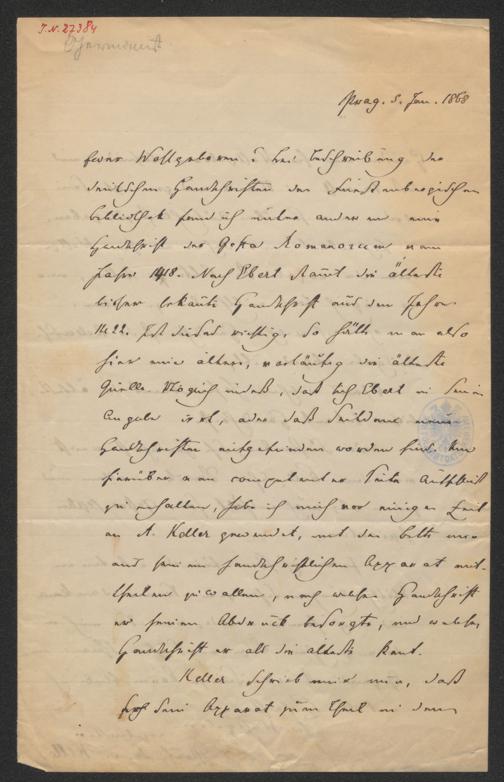 J.N. 27384
Prag. 5. Jan. 1868
Euer Wohlgeboren! Bei Beschreibung der
deutschen Handschriften der Fürstenbergischen
Bibliothek fand ich unter anderem eine
Handschrift der Gesta Romanorum vom
Jahre 1418. Nach Ebert stamt die älteste
bisher bekante Handschrift aus dem Jahre
1422. Ist dieses richtig, so hätte man also
hier eine ältere, vorläufig die älteste
Quelle. Möglich indeß, daß sich Ebert in seiner
Angabe irrt, oder daß seitdem neue
Handschriften aufgefunden worden sind. Um
hierüber von competenter Seite Aufschluß
zu erhalten, habe ich mich vor einiger Zeit
an A. Keller gewendet, mit der Bitte mir
aus seinem handschriftlichen Apparat mit-
theilen zu wollen, nach welcher Handschrift
er seinen Abdruck besorgte, und welche
Handschrift er als die älteste kent.
Keller schrieb mir nun, daß
sein Apparat zum Theil in den